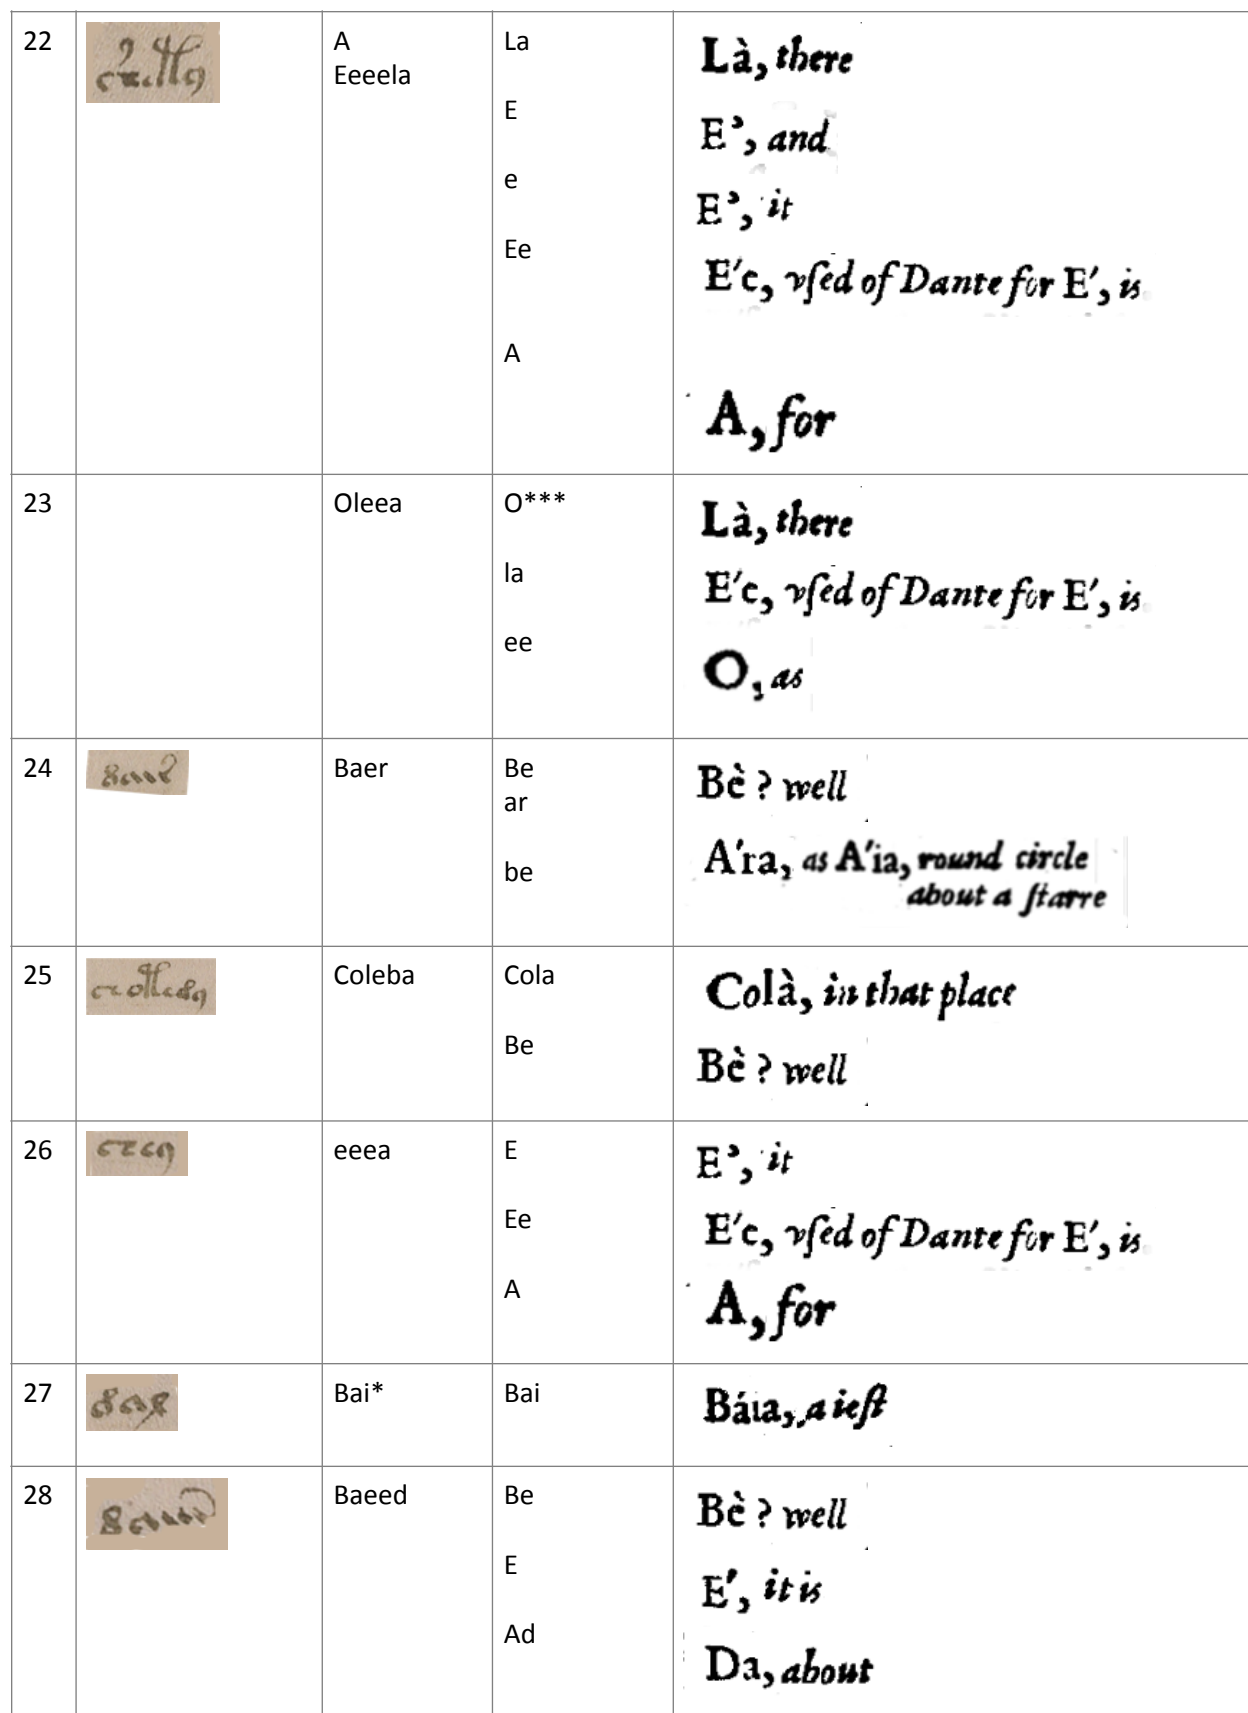 22
A
Eeeela
La
E
e
Ee
A
Là, there
E', and
E', it
E'e, vſed of Dante for E', is
A, for
23
Oleea
O***
la
ee
Là, there
E'e, vſed of Dante for E', is
O, as
24
Baer
Be
ar
be
Bè ? well
A'ra, as A'ia, round circle
about a ſtarre
25
Coleba
Cola
Be
Colà, in that place
Bè ? well
26
eeea
E
Ee
A
E', it
E'e, vſed of Dante for E', is
A, for
27
Bai*
Bai
Báia, a ieſt
28
Baeed
Be
E
Ad
Bè ? well
E', it is
Da, about